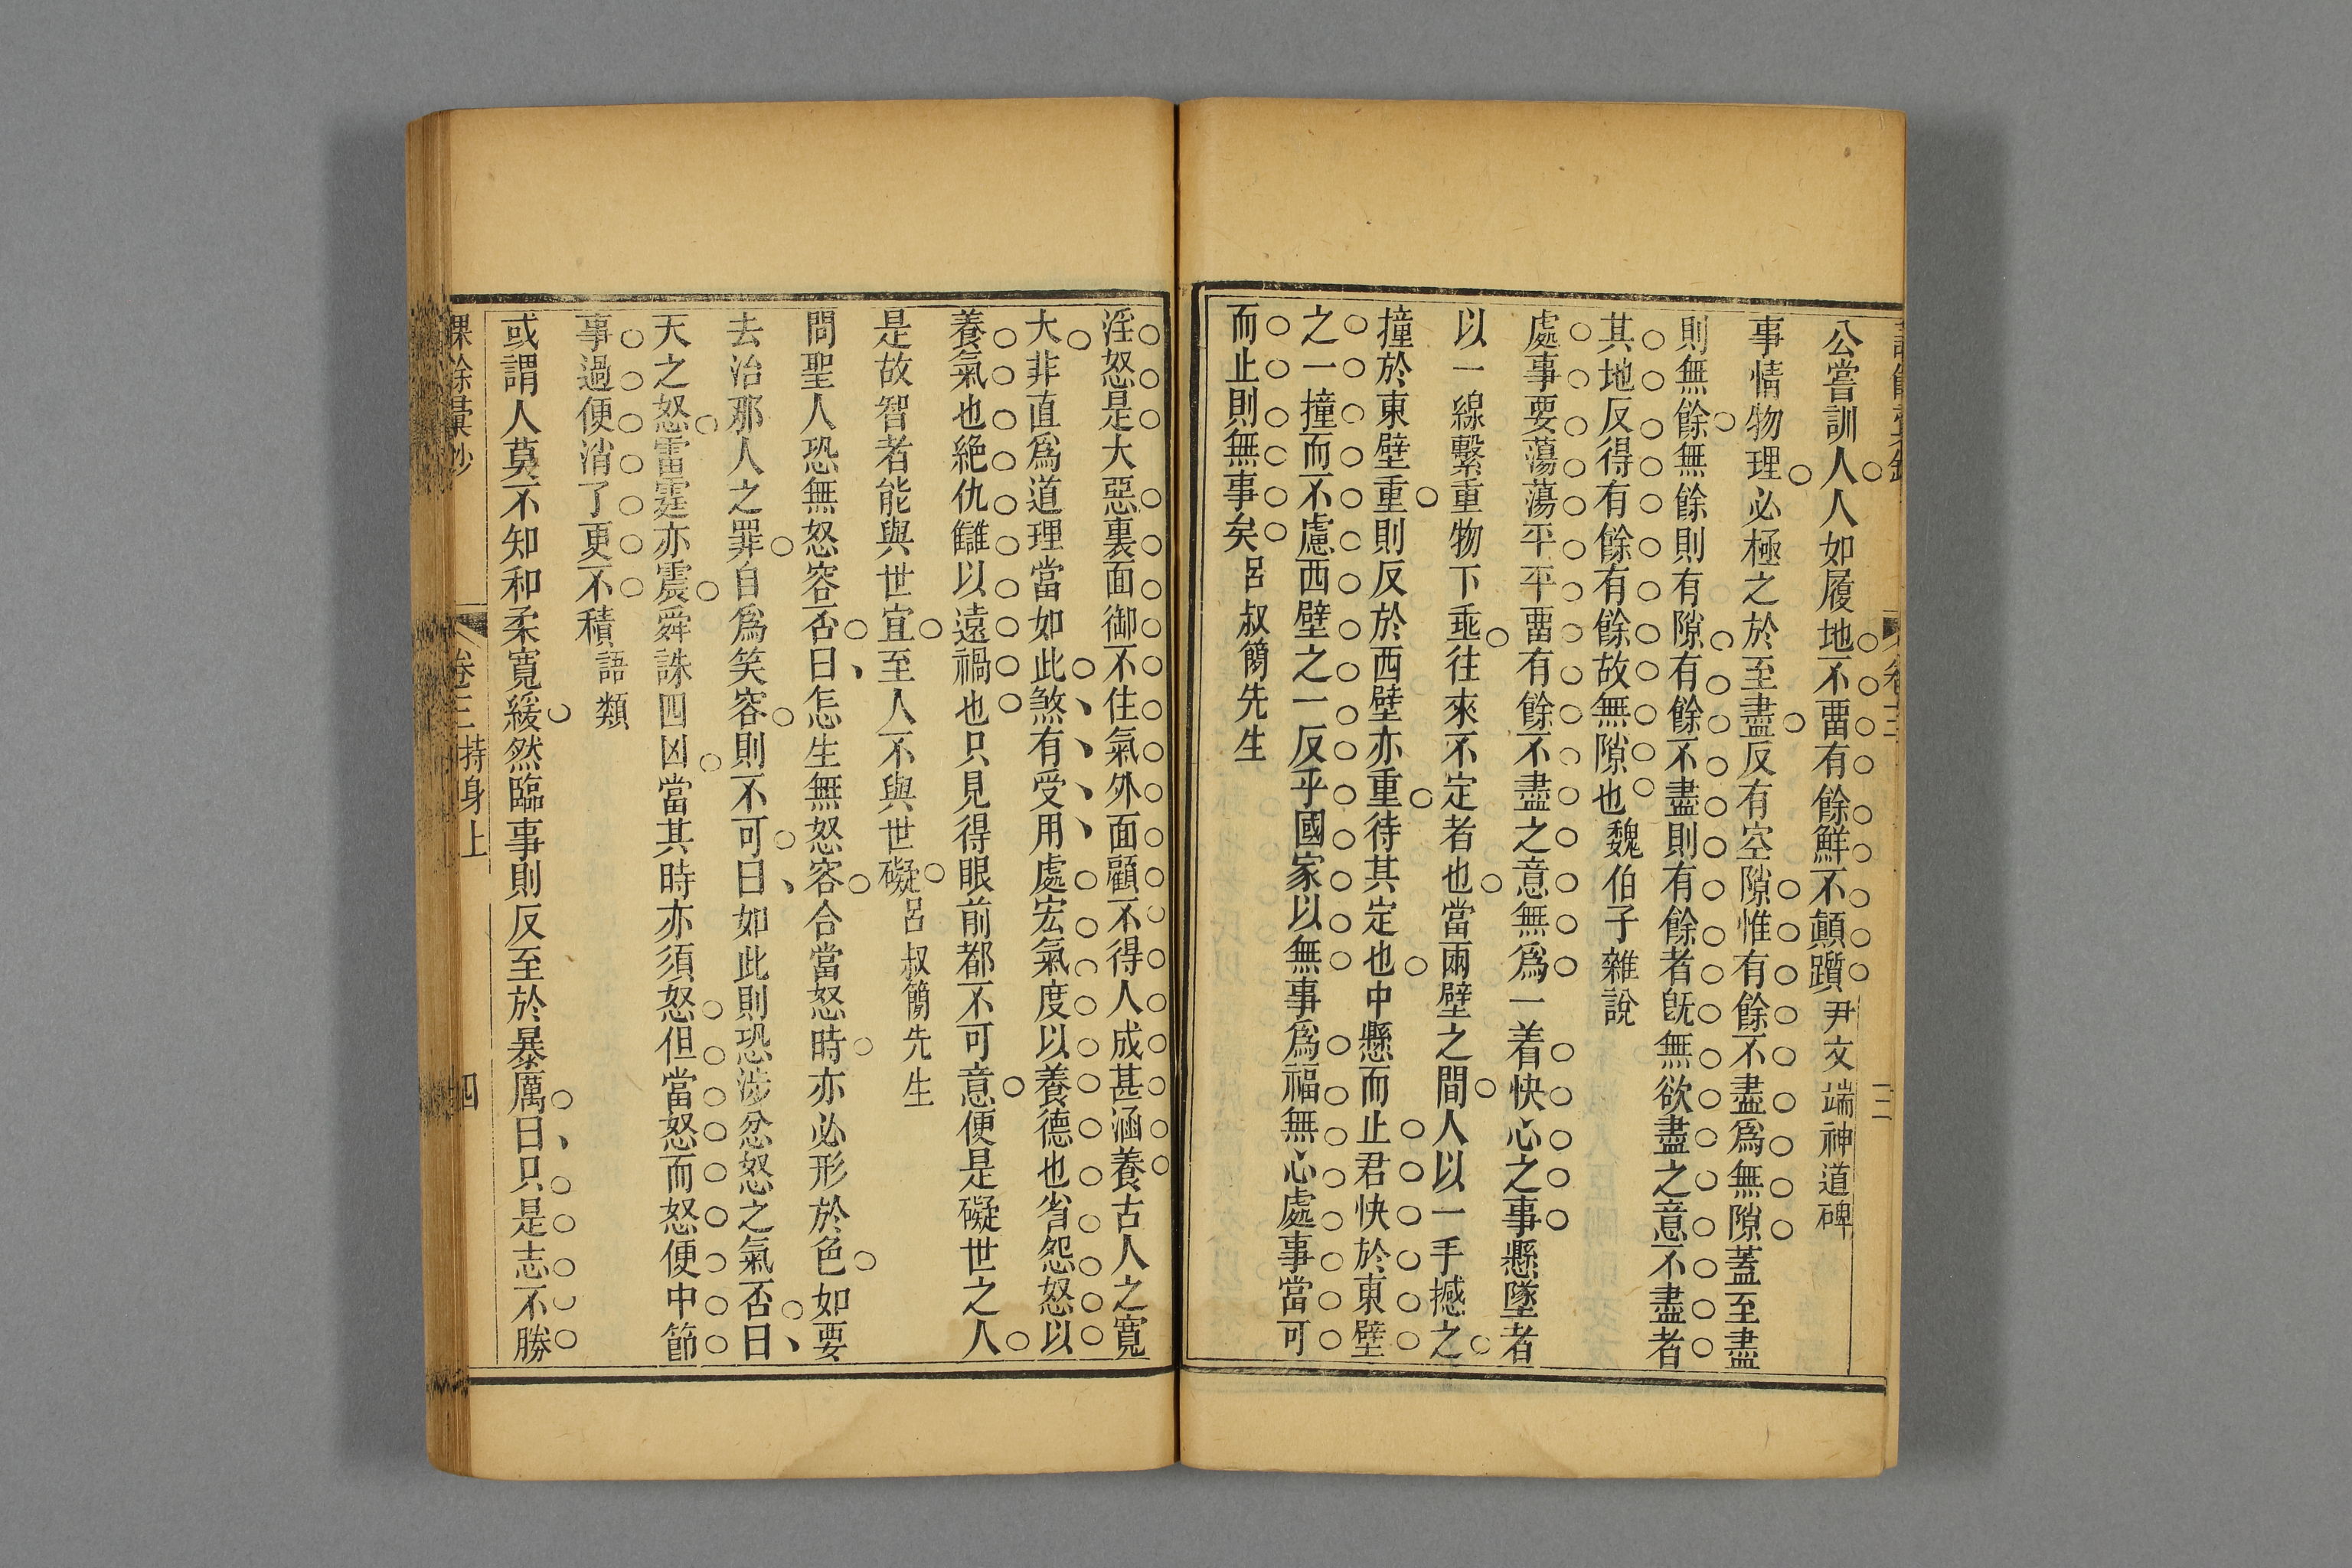 公嘗訓人人如履地不畱有餘鮮不顛躓尹文端神道碑
事情物理必極之於至盡反有空隙惟有餘不盡爲無隙蓋至盡
則無餘無餘則有隙有餘不盡則有餘者旣無欲盡之意不盡者
其地反得有餘有餘故無隙也魏伯子雜說
處事要蕩蕩平平畱有餘不盡之意無爲一着快心之事懸墜者
以一線繫重物下垂往來不定者也當兩壁之間人以一手撼之
撞於東壁重則反於西壁亦重待其定也中懸而止君快於東壁
之一撞而不慮西壁之一反乎國家以無事爲福無心處事當可
而止則無事矣呂叔簡先生
卷三
三
淫怒是大惡裏面御不住氣外面顧不得人成甚涵養古人之寬
大非直爲道理當如此煞有受用處宏氣度以養德也省怨怒以
養氣也絶仇讎以遠禍也只見得眼前都不可意便是礙世之人
是故智者能與世宜至人不與世礙呂叔簡先生
問聖人恐無怒容否曰怎生無怒容合當怒時亦必形於色如要
去治那人之罪自爲笑容則不可曰如此則恐涉忿怒之氣否曰
天之怒雷霆亦震舜誅四凶當其時亦須怒但當怒而怒便中節
事過便消了更不積語類
或謂人莫不知和柔寬緩然臨事則反至於暴厲曰只是志不勝
課餘彙鈔
卷三持身上
四